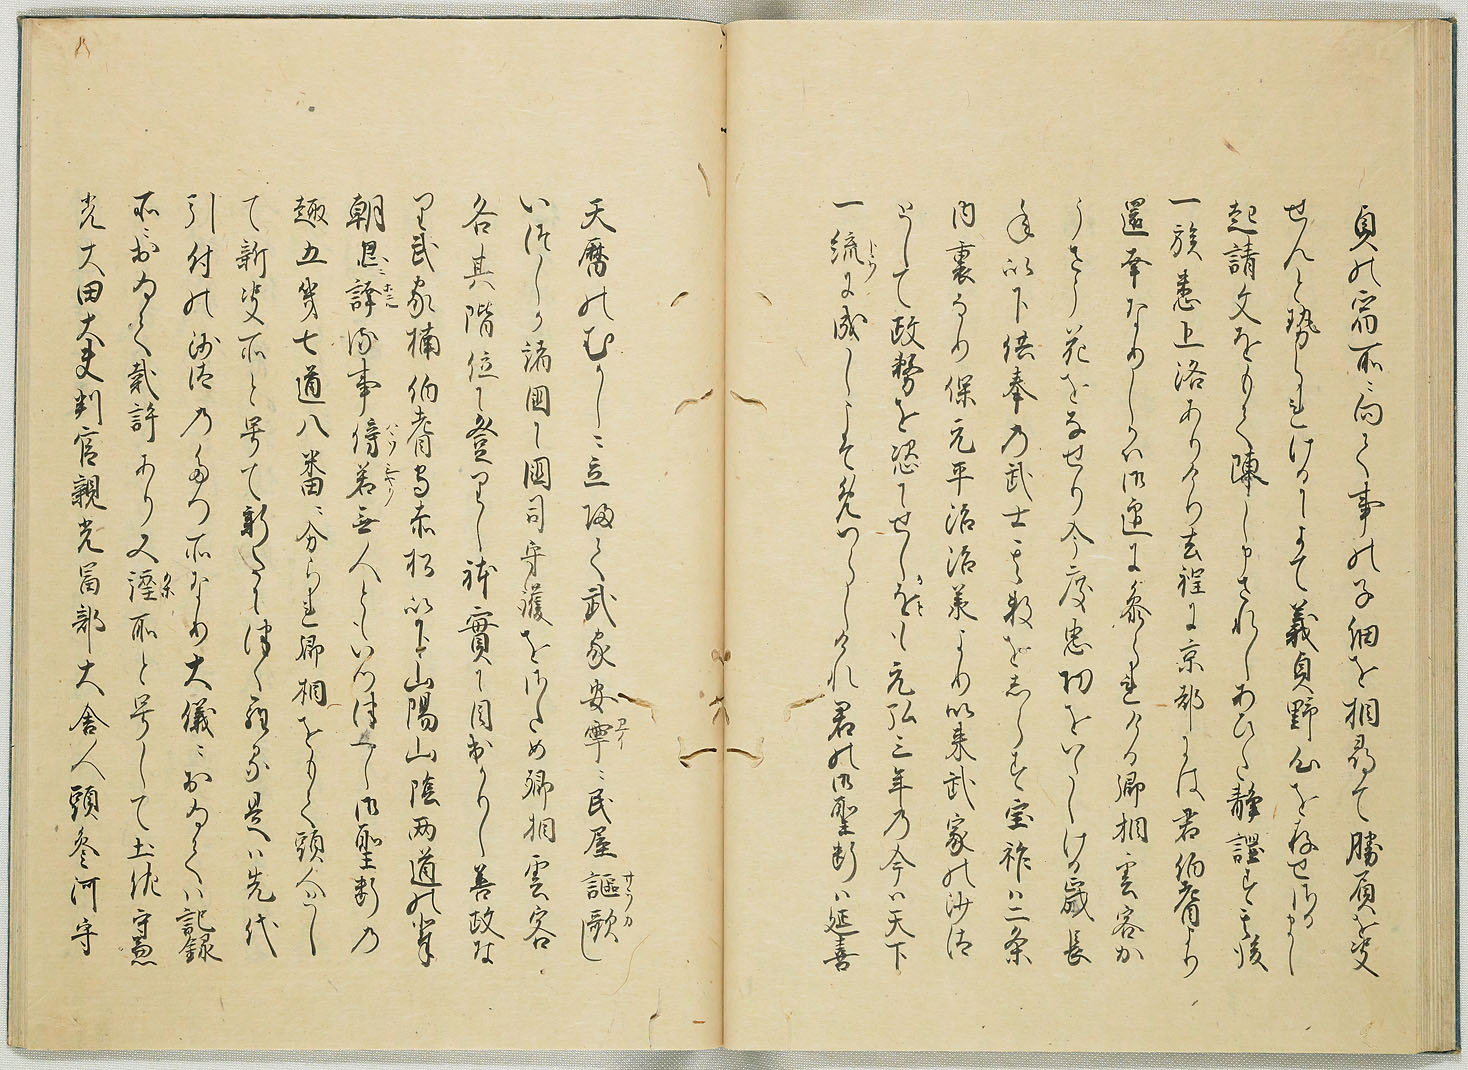 貞の宿所に向て事の子細を相尋て勝負を決
せんと勢しられけるによて義貞野心を存せさるよし
起請文をもて陳し申されしあひた静謐す其後
一族悉上洛ありけり去程に京都には君伯耆より
還幸なりしかは御迎に参られける卿相雲客
うさう花をなせり今度忠功をいたしける正成長
年以下供奉の武士其数をしらす宝祚は二条
内裏なり保元平治治承より以来武家の沙汰
として政務を恣にせしかとも元弘三年の今は天下
一統に成しこそめつらしけれ君の御聖断は延喜
天暦のむかしに立帰て武家安寧に民屋謳歌し
いつしか諸国に国司守護をさため卿相雲客
各其階位に登りし体実に目出かりし善政な
り武家楠伯耆守赤松以下山陽山陰両道の輩
朝恩に誇る事傍若無人ともいつつへし御聖断の
趣五畿七道八番に分られ卿相をもて頭人とし
て新決所と号て新たに
引付の沙汰のたつ所なり大儀におゐては記録
所におゐて裁許あり又窪所と号して土佐守兼
光大田大夫判官親光冨部大舎人頭参河守